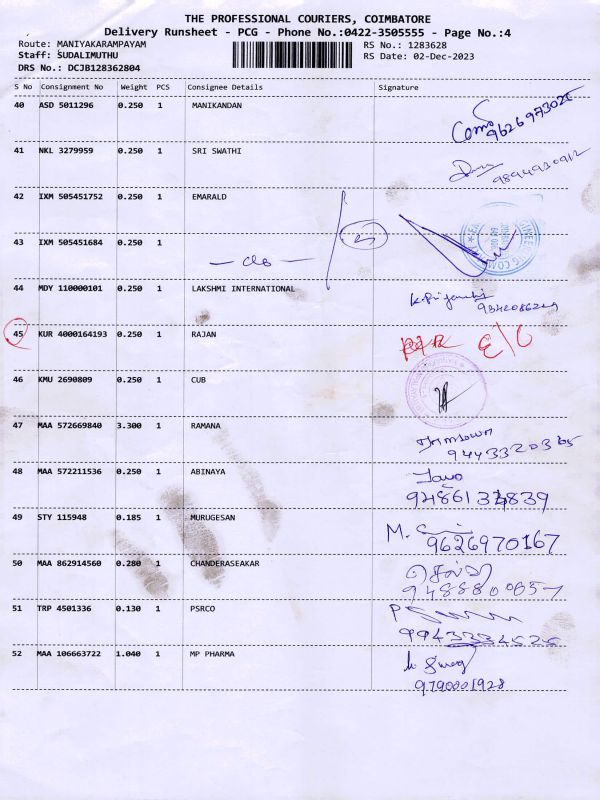 THE PROFESSIONAL COURIERS, COIMBATORE
Delivery Runsheet - PCG - Phone No.:0422-3505555 - Page No.:4
Route: MANIYAKARAMPAYAM RS No.: 1283628
Staff: SUDALIMUTHU RS Date: 02-Dec-2023
DRS No.: DCJB128362804
S No Consignment No Weight PCS Consignee Details Signature
40 ASD 5011296 0.250 1 MANIKANDAN
41 NKL 3279959 0.250 1 SRI SWATHI
9894930912
42 IXM 505451752 0.250 1 EMARALD
43 IXM 505451684 0.250 1
44 MDY 110000101 0.250 1 LAKSHMI INTERNATIONAL
45 KUR 4000164193 0.250 1 RAJAN
46 KMU 2690809 0.250 1 CUB
47 MAA 572669840 3.300 1 RAMANA
9443320365
48 MAA 572211536 0.250 1 ABINAYA
49 STY 115948 0.185 1 MURUGESAN
9626970167
50 MAA 862914560 0.280 1 CHANDERASEAKAR
9488800657
51 TRP 4501336 0.130 1 PSRCO
52 MAA 106663722 1.040 1 MP PHARMA
9790001928